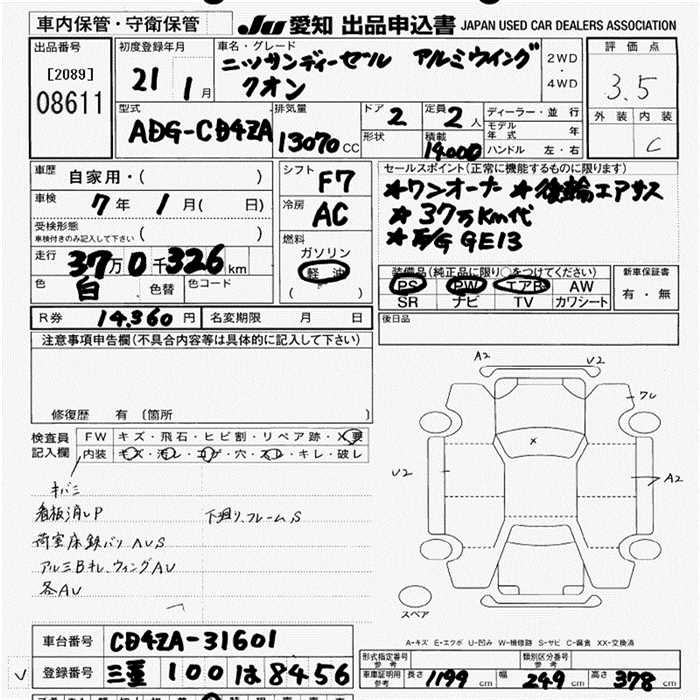 車内保管・守衛保管 JU 愛知 出品申込書 JAPAN USED CAR DEALERS ASSOCIATION
出品番号 [2089] 08611
初度登録年月 21 1月
車名・グレード ニッサンディーゼル アルミウイング
クオン
2WD・4WD
評価点 3.5
外装 内装 C
型式 ADG-CD4ZA
排気量 13070 CC
ドア 2 形状
定員 2人 積載 14,000
ディーラー・並行
モデル年式 年
ハンドル 左・右
車歴 自家用・( )
車検 7年 1月( 日)
受検形態 車検付きのみ記入して下さい ( )
走行 37万0千326km
色 白 色替 色コード
シフト F7
冷房 AC
燃料 ガソリン
軽油
( )
セールスポイント(正常に機能するものに限ります)
★ワンオーナ ★後輪エアサス
★37万Km代
GE13
装備品(純正品に限り○をつけてください)
PS PW エアB AW
SR ナビ TV カワシート
新車保証書 有・無
R券 14,360円 名変期限 月 日
後日品
注意事項申告欄(不具合内容等は具体的に記入して下さい)
修復歴 有〔箇所 〕
検査員記入欄
FW キズ・飛石・ヒビ割・リペア跡・X要
内装 キズ・汚レ・コゲ・穴・スレ・キレ・破レ
キバミ
看板消しP 下廻り、フレームS
荷室床鉄バリAUS
アルミBキレ、ウィングAU
各AU
A2 V2
フレ
×
V2 A2
スペア
A-キズ E-エクボ U-凹み W-補修跡 S-サビ C-腐食 XX-交換済
車台番号 CD4ZA-31601
登録番号 三重 100 は 8456
形式指定番号 参考 類別区分番号 参考
車庫証明用 参考 長さ 1199cm 幅 249cm 高さ 378cm